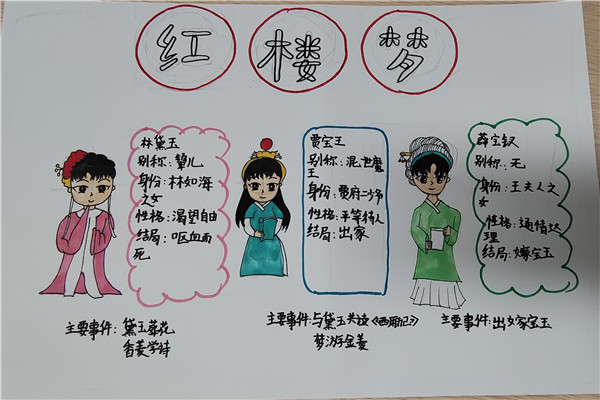 红楼梦
林黛玉
别称：颦儿
身份：林如海
之女
性格：渴望自由
结局：呕血而
死
主要事件：黛玉葬花
香菱学诗
贾宝玉
别称：混世魔
王
身份：贾府二少爷
性格：平等待人
结局：出家
主要事件：与黛玉共读《西厢记》
梦游金菱
薛宝钗
别称：无
身份：王夫人之
女
性格：通情达
理
结局：嫁宝玉
主要事件：出嫁宝玉